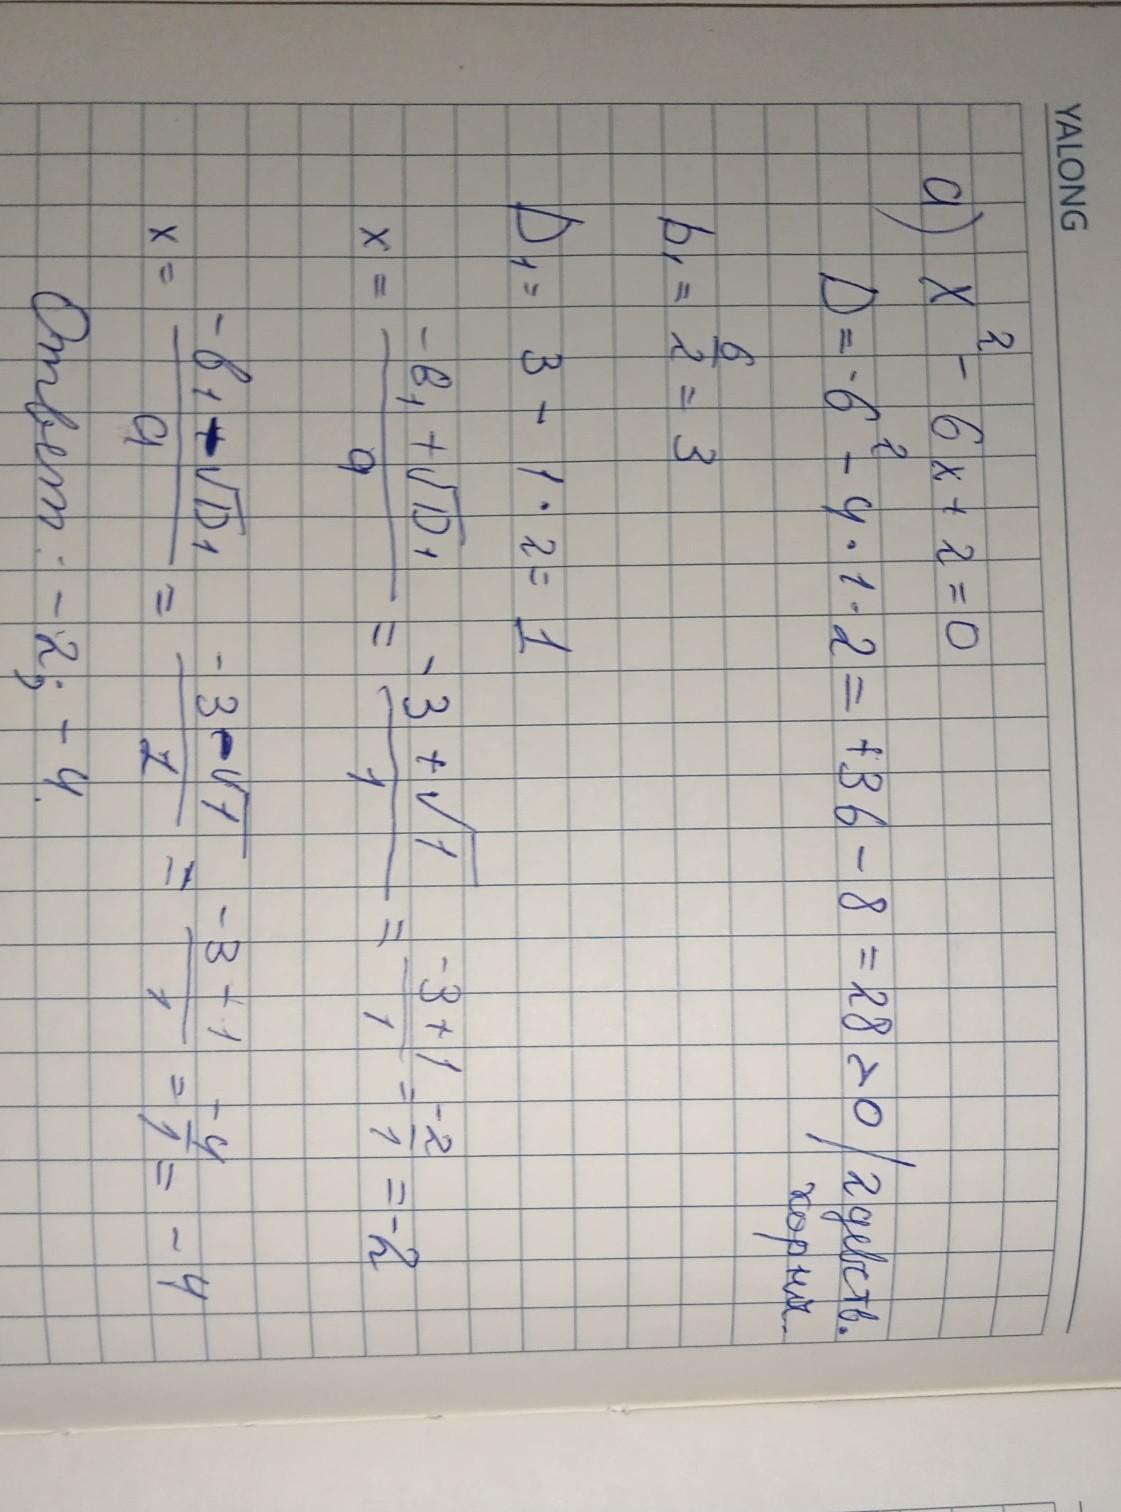 YALONG
a) x² - 6x + 2 = 0
D = -6² - 4 · 1 · 2 = +36 - 8 = 28 > 0 / 2 действ. корни.
b₁ = 6/2 = 3
D₁ = 3 - 1 · 2 = 1
x = (-b₁ + √D₁)/a = (-3 + √1)/1 = (-3 + 1)/1 = -2/1 = -2
x = (-b₁ - √D₁)/a = (-3 - √1)/1 = (-3 + 1)/1 = -4/1 = -4
Ответ: -2; -4.